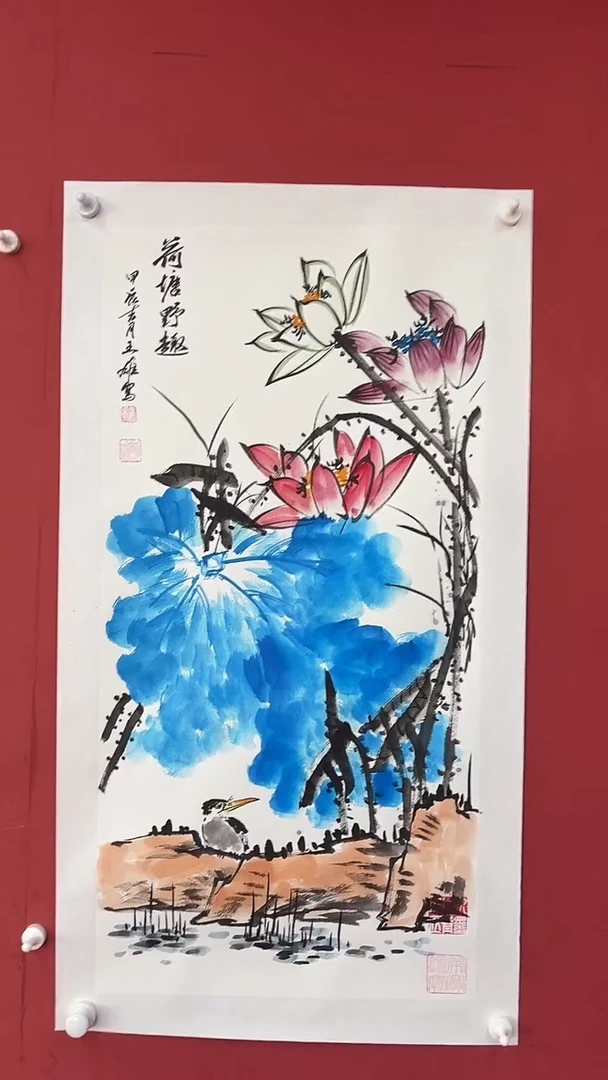 荷塘野趣
甲辰吉月王雄写